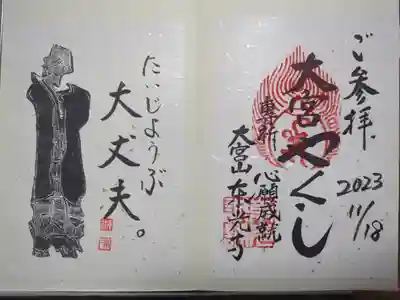 ご参拝
2023
11/18
大宮やくし
専祈
心願成就
大宮山
たいじょうぶ
大丈夫。